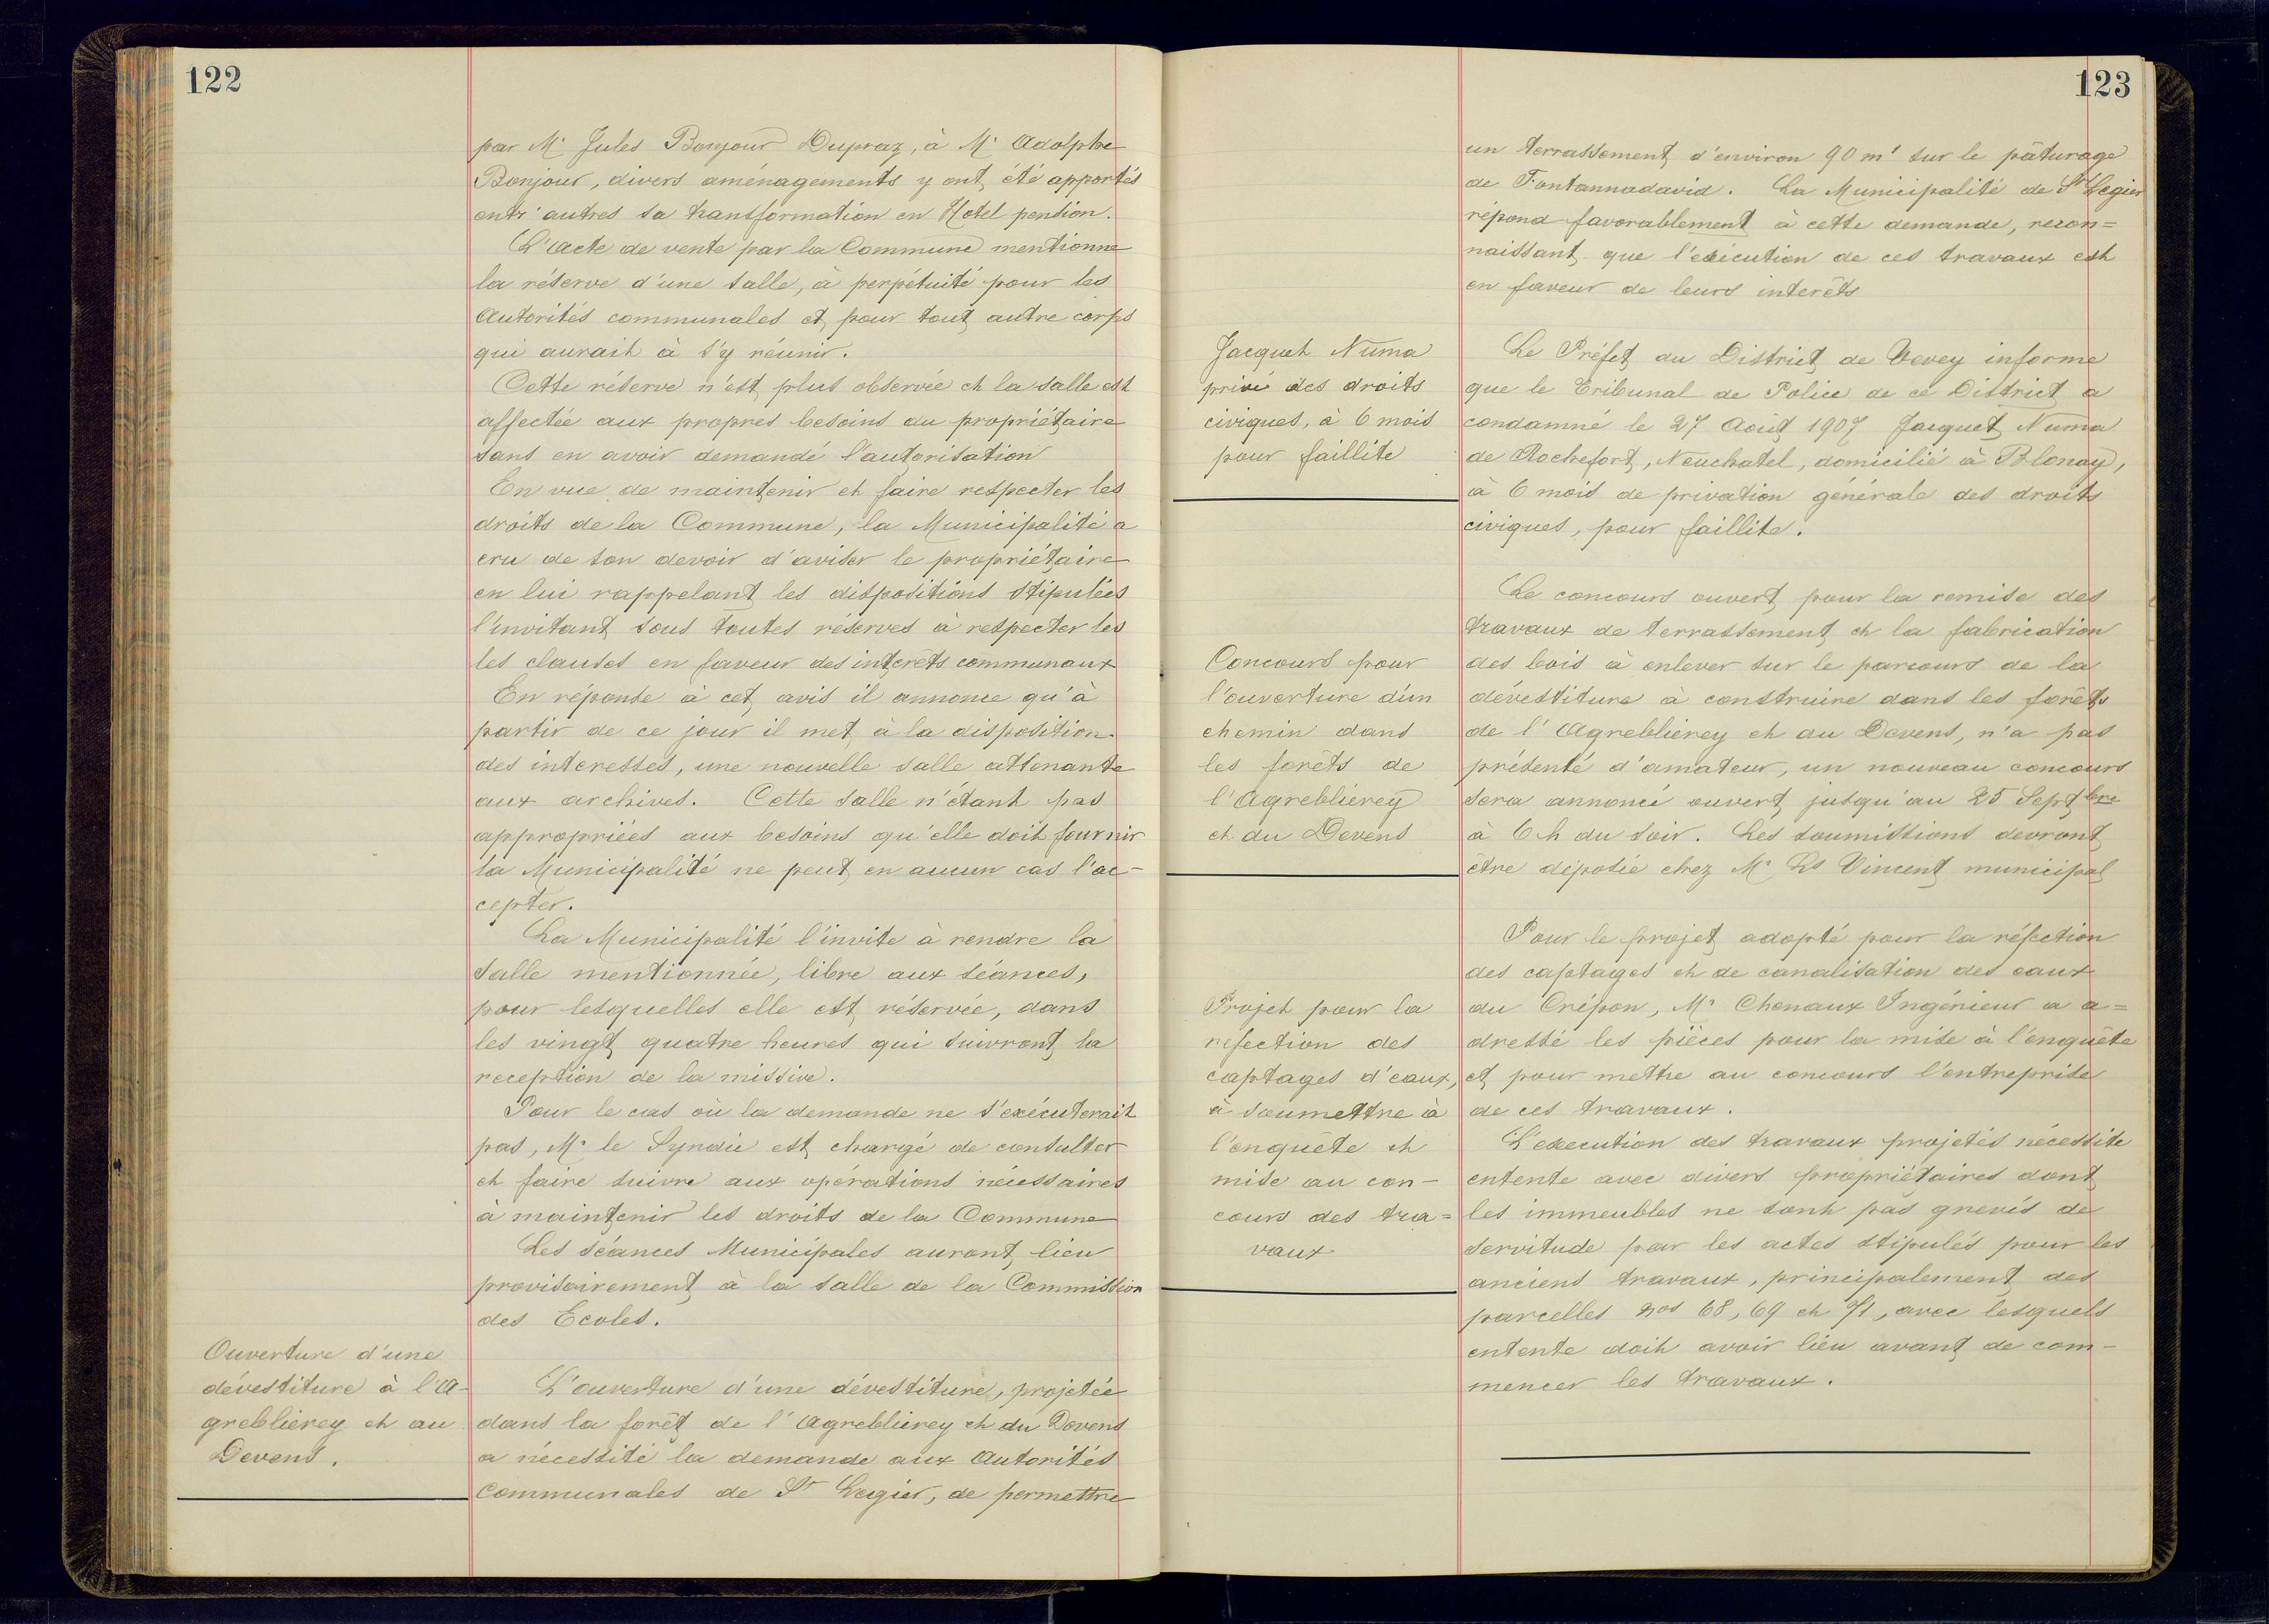 122
par Mr Jules Bonjour Dupraz, à Mr Adolphe
Bonjour, divers aménagements y ont été apportés
entr'autres sa transformation en Hotel pension.
L'Acte de vente par la Commune mentionne
la réserve d'une salle, à perpétuité pour les
Autorités communales et pour tout autre corps
qui aurait à s'y réunir.
Cette réserve n'est plus observée et la salle est
affectée aux propres besoins du propriétaire
sans en avoir demandé l'autorisation
En vue de maintenir et faire respecter les
droits de la Commune, la Municipalité a
cru de son devoir d'aviser le propriétaire
en lui rappelant les dispositions stipulées
l'invitant sous toutes réserves à respecter les
les clauses en faveur des intérêts communaux
En réponse à cet avis il annonce qu'à
partir de ce jour il met à la disposition
des interessés, une nouvelle salle attenante
aux archives. Cette salle n'étant pas
appropriées aux besoins qu'elle doit fournir
la Municipalité ne peut en aucun cas l'ac-
cepter.
La Municipalité l'invite à rendre la
salle mentionnée, libre aux séances,
pour lesquelles elle est réservée, dans
les vingt quatre heures qui suivront la
reception de la missive.
Pour le cas où la demande ne s'exécuterait
pas, Mr le Syndic est chargé de consulter
et faire suivre aux opérations nécessaires
à maintenir les droits de la Commune
Les séances Municipales auront lieu
provisoirement à la salle de la Commission
des Ecoles.
Ouverture d'une
dévestiture à l'A-
greblierey et au
Devens.
L'ouverture d'une dévestiture, projetée
dans la forêt de l'Agreblierey et du Devens
a nécessité la demande aux Autorités
Communales de St Legier, de permettre
123
un terrassement d'environ 90 m' sur le pâturage
de Fontannadavid. La Municipalité de St Legier
répond favorablement à cette demande, recon=
naissant que l'exécution de ces travaux est
en faveur de leurs interêts
Jacquet Numa
privé des droits
civiques, à 6 mois
pour faillite
Le Préfet du District de Vevey informe
que le Tribunal de Police de ce District a
condamné le 27 Août 1907 Jacquet Numa
de Rochefort, Neuchatel, domicilié à Blonay,
à 6 mois de privation générale des droits
civiques, pour faillite.
Concours pour
l'ouverture d'un
chemin dans
les forêts de
l'Agreblierey
et du Devens
Le concours ouvert pour la remise des
travaux de terrassement et la fabrication
des bois à enlever sur le parcours de la
dévestiture à construire dans les forêts
de l'Agreblierey et au Devens, n'a pas
présenté d'amateur, un nouveau concours
sera annoncé ouvert jusqu'au 25 Septbre
à 6 h du soir. Les soumissions devront
être déposée chez Mr Ls Vincent municipal
Projet pour la
refection des
captages d'eaux,
à soumettre à
l'enquête et
mise au con-
cours des tra=
vaux
Pour le projet adopté pour la réfection
des captages et de canalisation des eaux
du Crépon, Mr Chenaux Ingénieur a a=
dressé les pièces pour la mise à l'enquête
et pour mettre au concours l'entreprise
de ces travaux.
L'execution des travaux projetés nécessite
entente avec divers propriétaires dont
les immeubles ne sont pas grevés de
servitude par les actes stipulés pour les
anciens travaux, principalement des
parcelles nos 68, 69 et 71, avec lesquels
entente doit avoir lieu avant de com-
mencer les travaux.